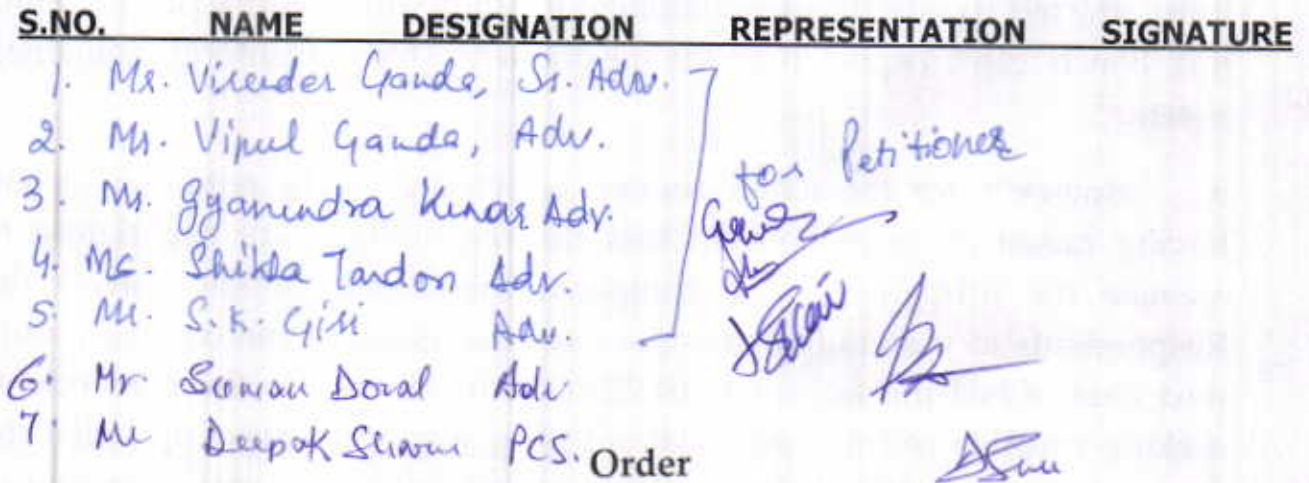 S.NO. NAME DESIGNATION REPRESENTATION SIGNATURE
1. Mr. Virender Ganda, Sr. Adv.
2. Mr. Vipul Ganda, Adv.
3. Mr. Gyanendra Kumar Adv.
4. Ms. Shikha Tandon Adv.
5. Mr. S.K. Giri Adv.
for Petitioner
6. Mr Suman Doval Adv
7. Mr Deepak PCS.
Order